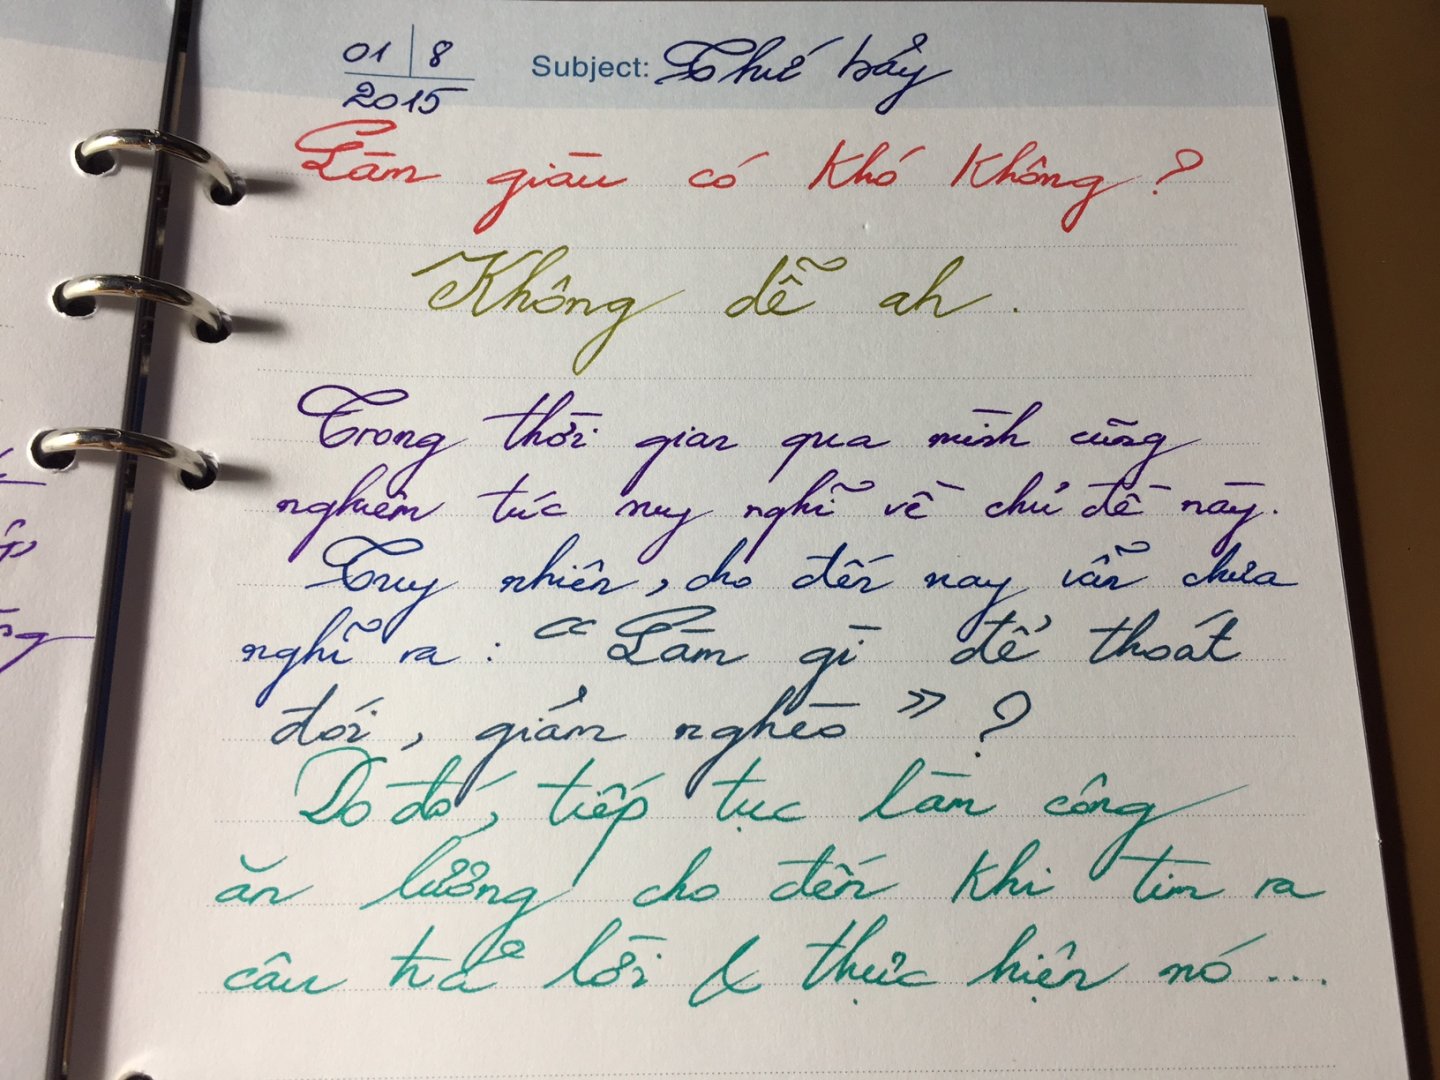 01 | 8
2015
Subject: Thứ bảy
Làm giàu có khó không?
Không dễ ah.
Trong thời gian qua mình cũng
nghiêm túc suy nghĩ về chủ đề này.
Tuy nhiên, cho đến nay vẫn chưa
nghĩ ra : "Làm gì để thoát
đói, giảm nghèo" ?
Do đó, tiếp tục làm công
ăn lương cho đến khi tìm ra
câu trả lời & thực hiện nó...